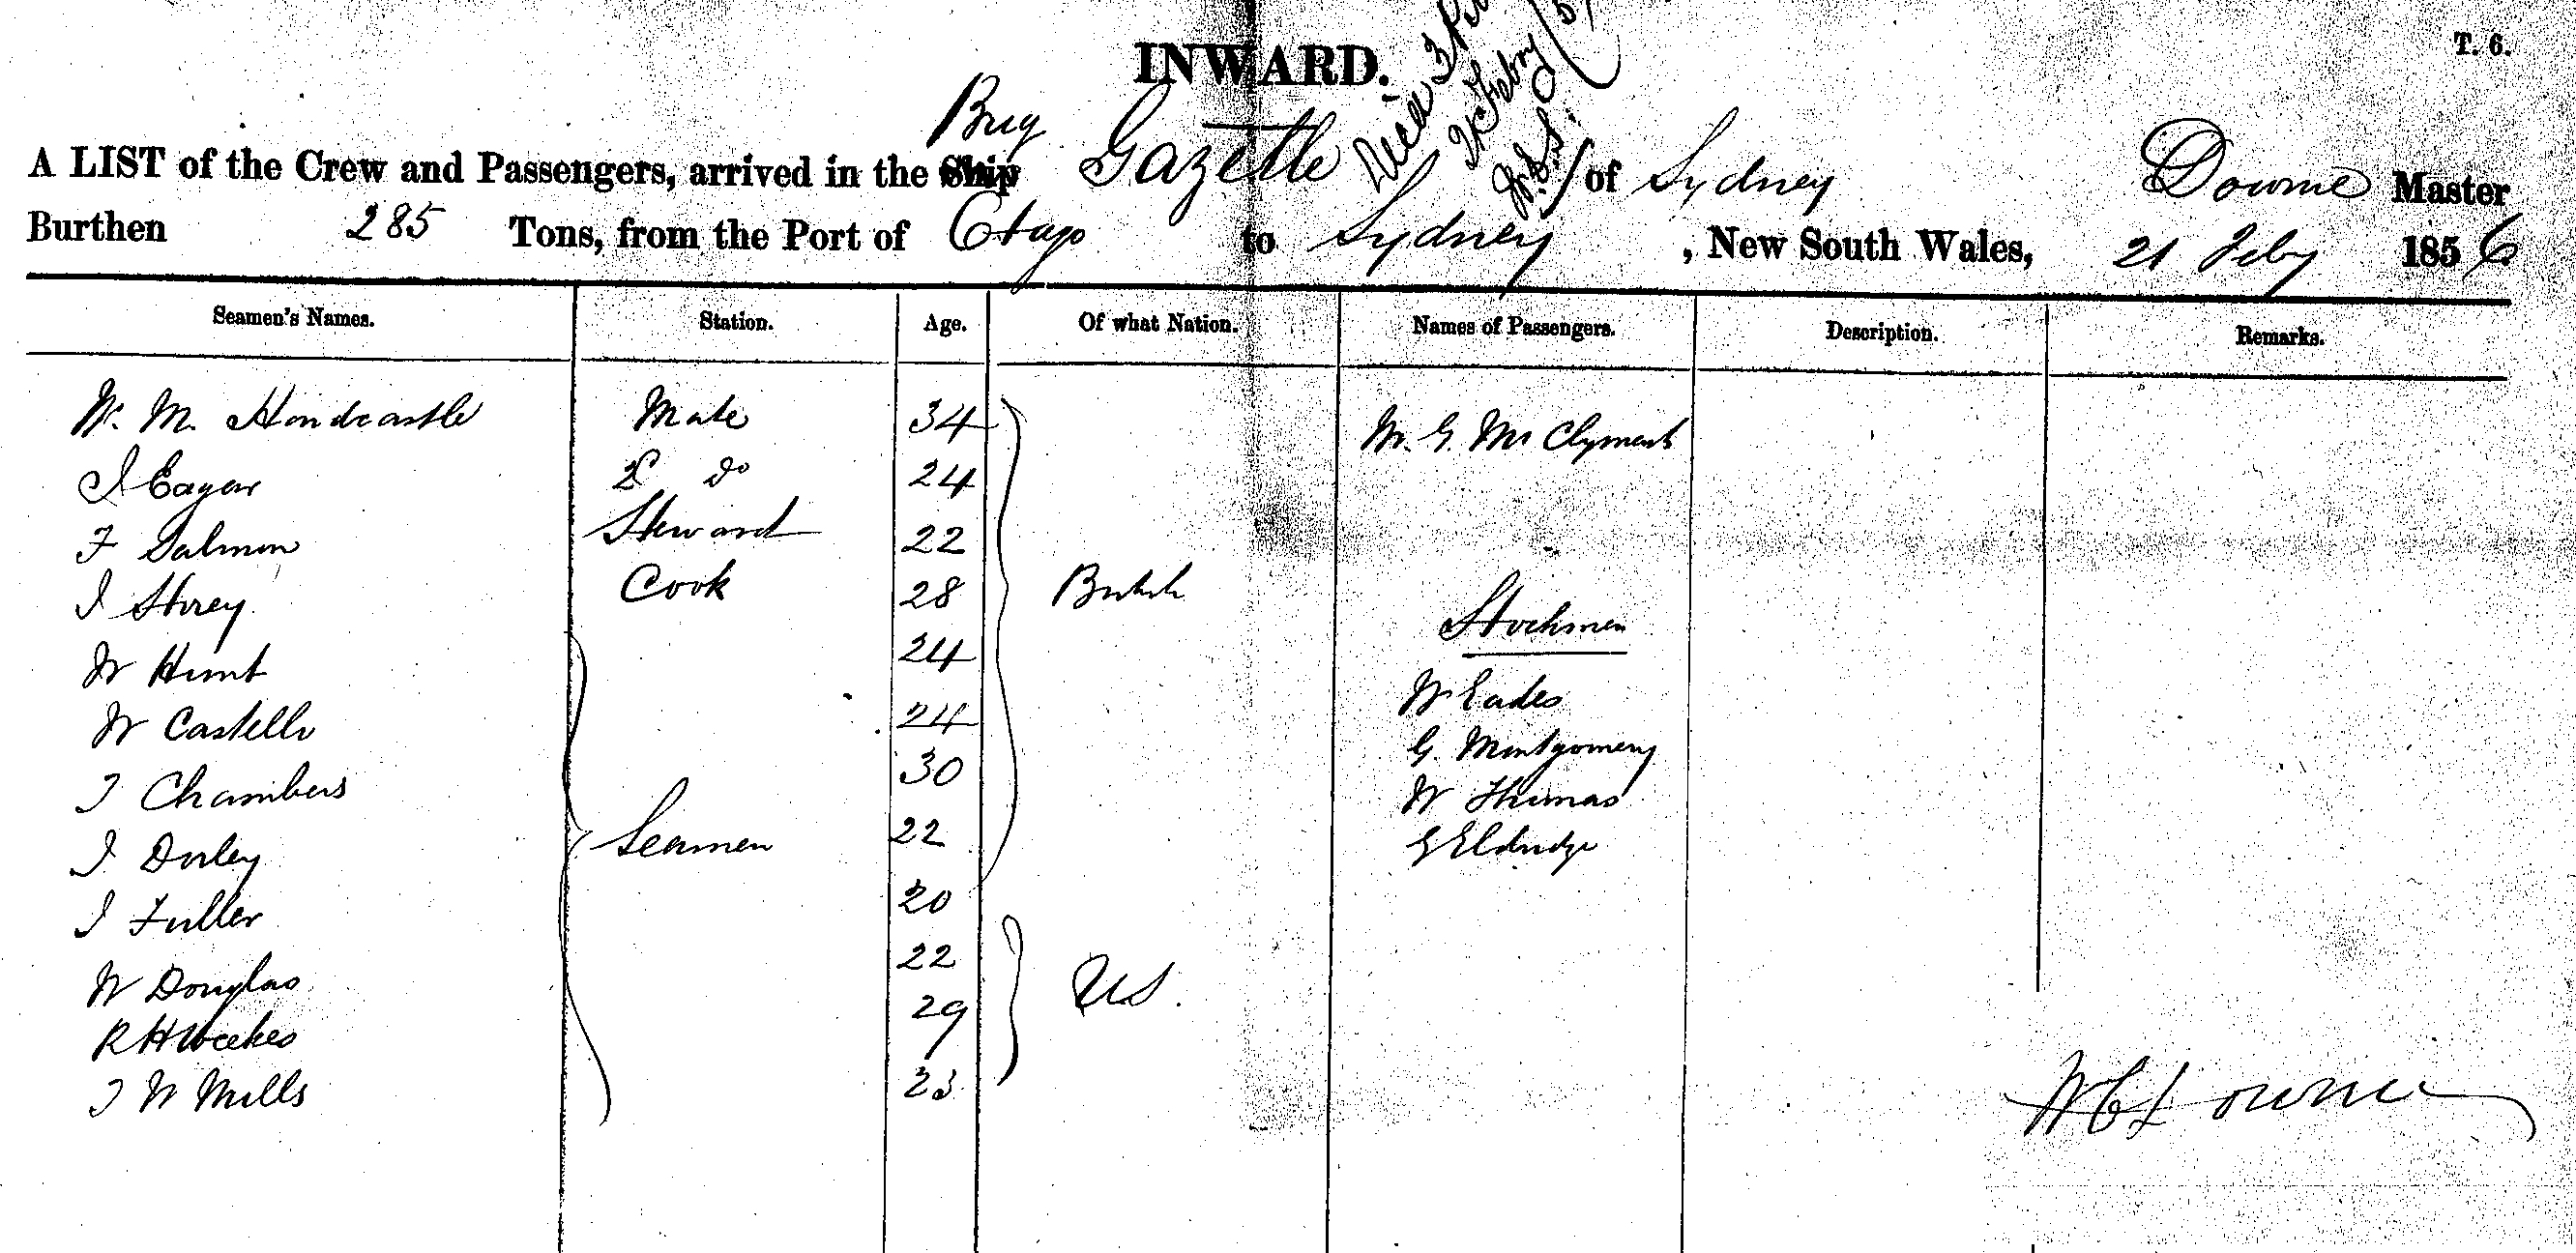 INWARD.
T. 6.
Brig
A LIST of the Crew and Passengers, arrived in the Ship Gazette of Sydney Downe Master
Burthen 285 Tons, from the Port of Otago to Sydney, New South Wales, 21 Feby 1856
Seamen's Names. Station. Age. Of what Nation. Names of Passengers. Description. Remarks.
W. M. Hondcastle Mate 34 Mr. G. Mc Clymont
J Eagar 2d do 24
F Salmon Steward 22
J Storey Cook 28 British Stockmen
W Hunt 24
W Castello 24 W Eades
T Chambers 30 G. Montgomery
J Dorley Seamen 22 W Thomas
J Fuller 20 G Eldridge
W Douglas 22 US.
R H Weekes 29
J W Mills 23
W C Downe